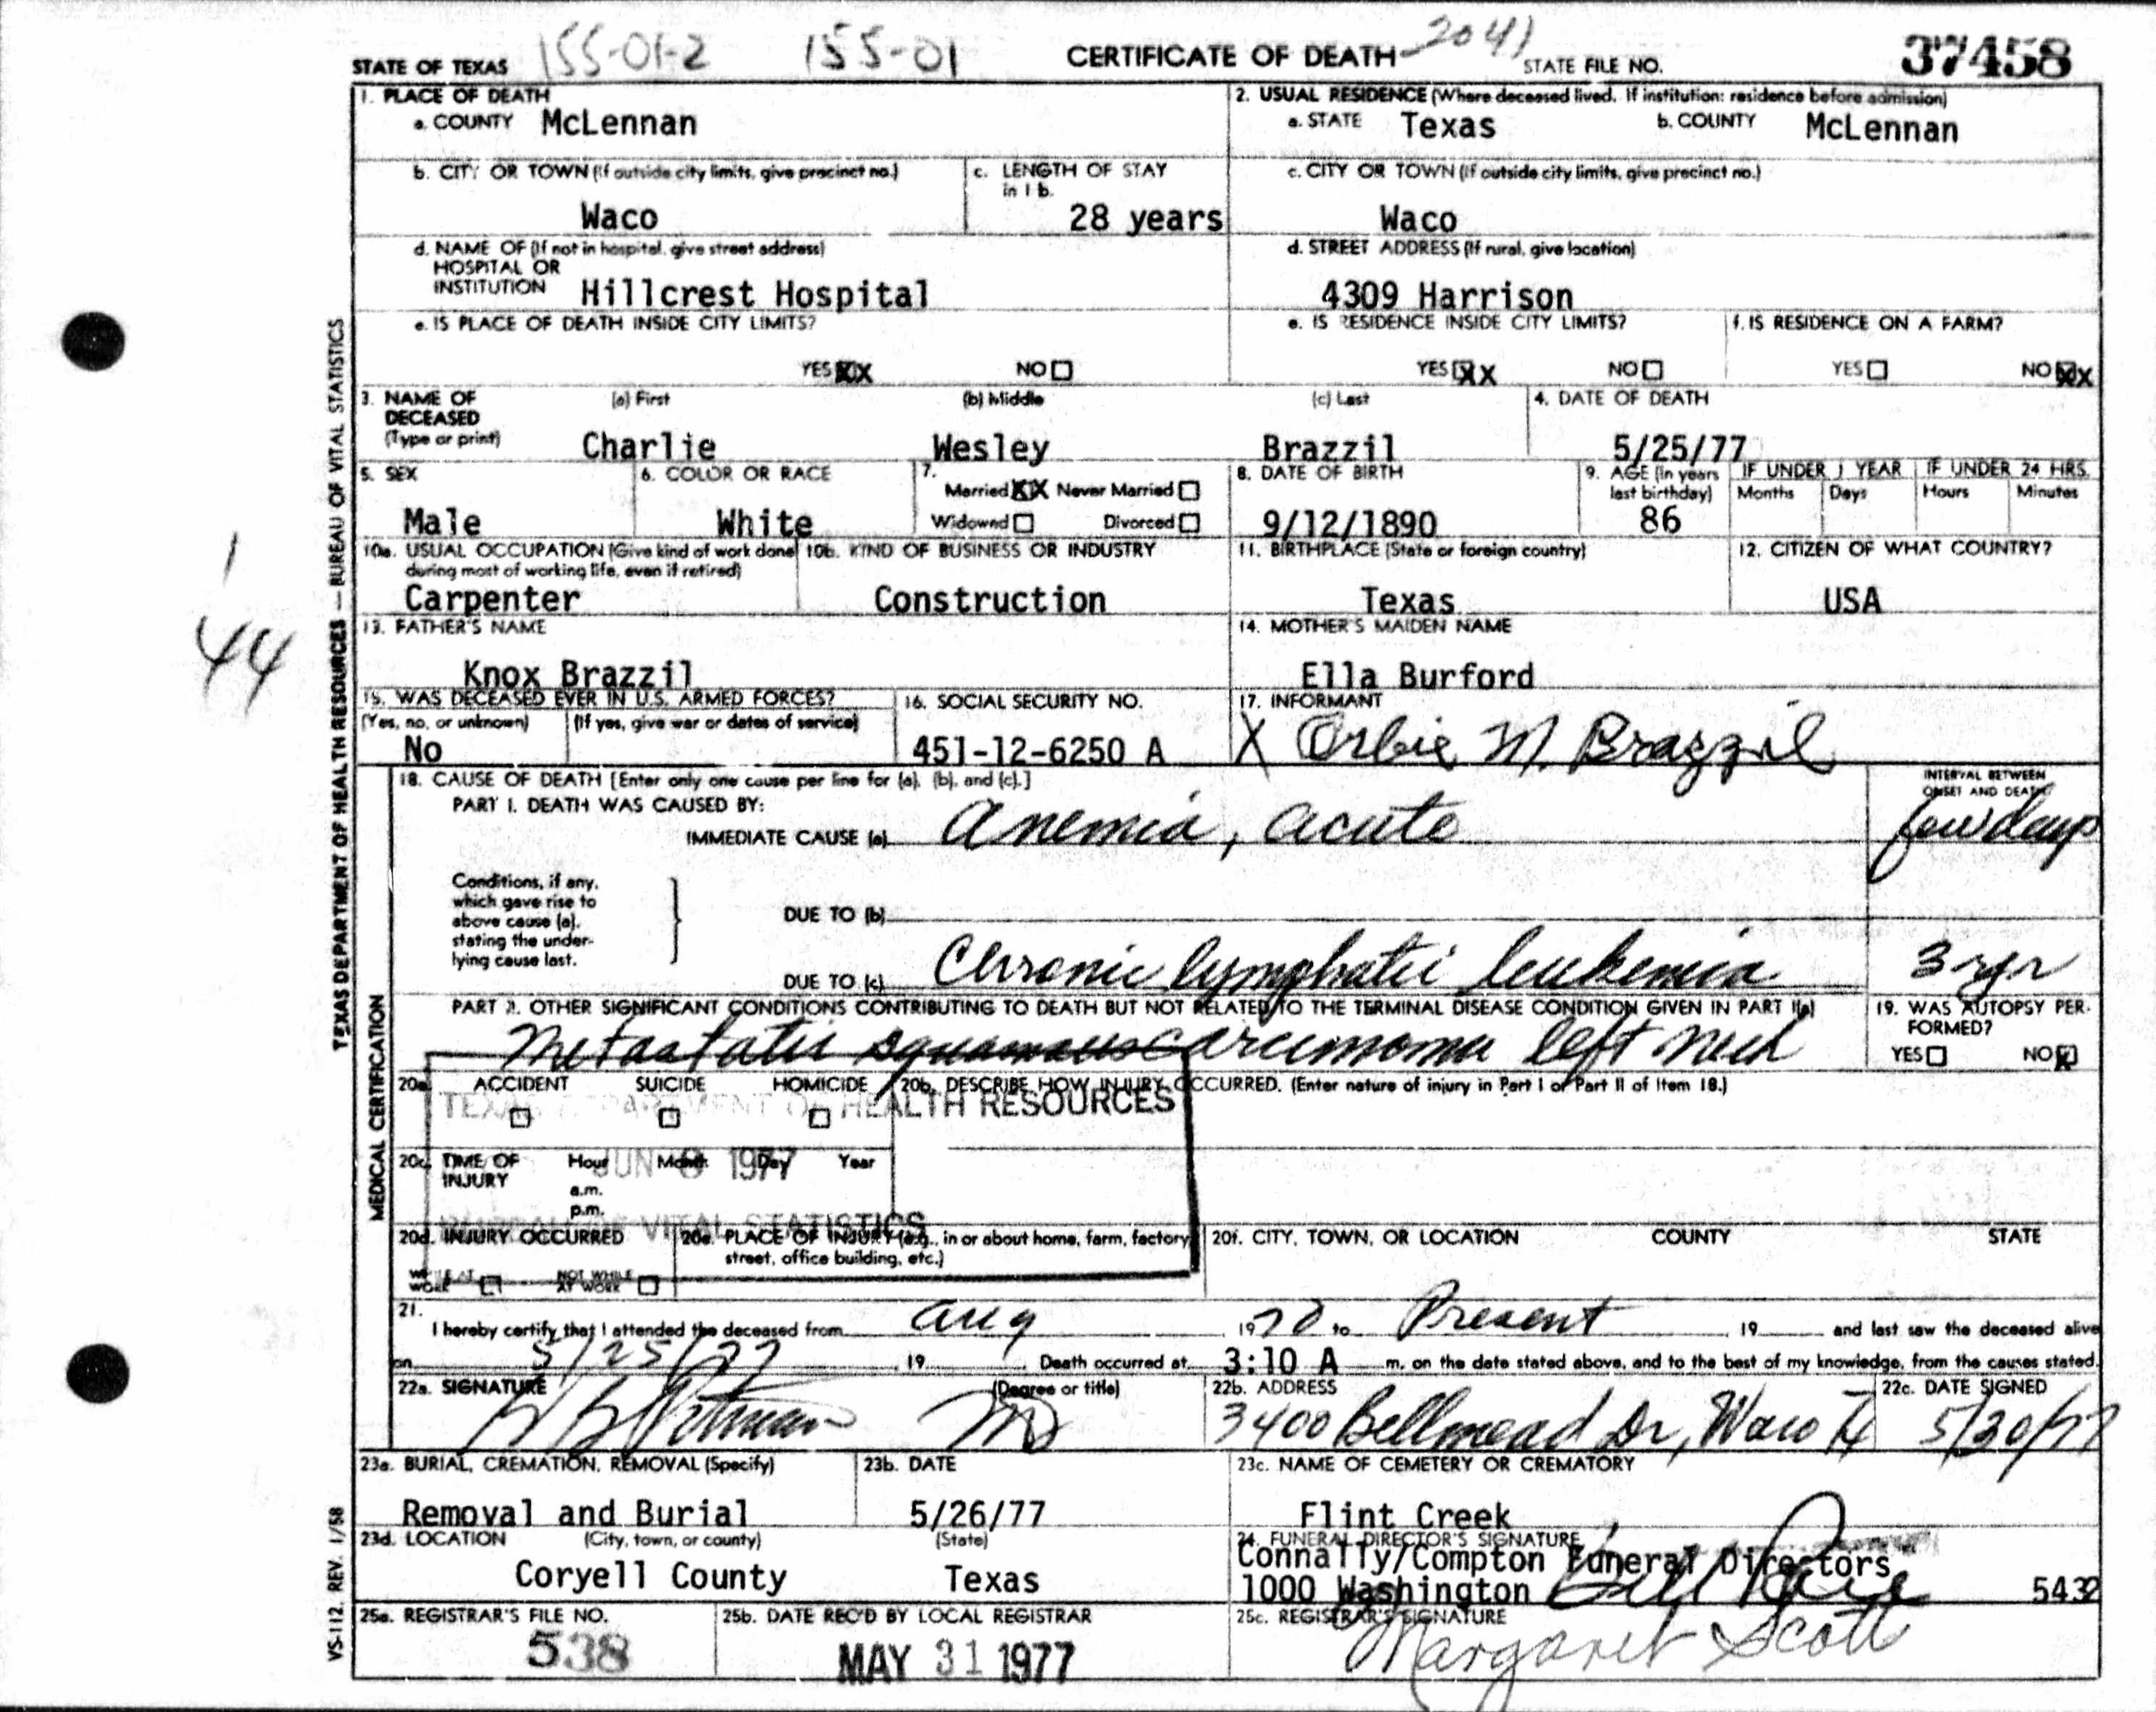 155-01-2 155-01 2041
STATE OF TEXAS CERTIFICATE OF DEATH STATE FILE NO. 37458
1. PLACE OF DEATH
a. COUNTY McLennan
2. USUAL RESIDENCE (Where deceased lived. If institution: residence before admission)
a. STATE Texas b. COUNTY McLennan
b. CITY OR TOWN (If outside city limits, give precinct no.)
Waco
c. LENGTH OF STAY
in 1 b.
28 years
c. CITY OR TOWN (If outside city limits, give precinct no.)
Waco
d. NAME OF (If not in hospital, give street address)
HOSPITAL OR
INSTITUTION Hillcrest Hospital
d. STREET ADDRESS (If rural, give location)
4309 Harrison
e. IS PLACE OF DEATH INSIDE CITY LIMITS?
YES XX NO
e. IS RESIDENCE INSIDE CITY LIMITS?
YES XX NO
f. IS RESIDENCE ON A FARM?
YES NO XX
3. NAME OF
DECEASED
(Type or print)
(a) First (b) Middle (c) Last
Charlie Wesley Brazzil
4. DATE OF DEATH
5/25/77
5. SEX
Male
6. COLOR OR RACE
White
7.
Married XX Never Married
Widowed Divorced
8. DATE OF BIRTH
9/12/1890
9. AGE (In years
last birthday)
86
IF UNDER 1 YEAR IF UNDER 24 HRS.
Months Days Hours Minutes
10a. USUAL OCCUPATION (Give kind of work done
during most of working life, even if retired)
Carpenter
10b. KIND OF BUSINESS OR INDUSTRY
Construction
11. BIRTHPLACE (State or foreign country)
Texas
12. CITIZEN OF WHAT COUNTRY?
USA
1
44
13. FATHER'S NAME
Knox Brazzil
14. MOTHER'S MAIDEN NAME
Ella Burford
15. WAS DECEASED EVER IN U.S. ARMED FORCES?
(Yes, no, or unknown) (If yes, give war or dates of service)
No
16. SOCIAL SECURITY NO.
451-12-6250 A
17. INFORMANT
X Orbie M. Brazzil
18. CAUSE OF DEATH [Enter only one cause per line for (a), (b), and (c).]
PART I. DEATH WAS CAUSED BY:
IMMEDIATE CAUSE (a) Anemia, acute
INTERVAL BETWEEN
ONSET AND DEATH
few days
Conditions, if any,
which gave rise to
above cause (a),
stating the under-
lying cause last.
DUE TO (b)
DUE TO (c) Chronic lymphatic leukemia
3 yr
PART 2. OTHER SIGNIFICANT CONDITIONS CONTRIBUTING TO DEATH BUT NOT RELATED TO THE TERMINAL DISEASE CONDITION GIVEN IN PART I(a)
Metastatic squamous carcinoma left neck
19. WAS AUTOPSY PER-
FORMED?
YES NO X
20a. ACCIDENT SUICIDE HOMICIDE
20b. DESCRIBE HOW INJURY OCCURRED. (Enter nature of injury in Part I or Part II of Item 18.)
TEXAS DEPARTMENT OF HEALTH RESOURCES
20c. TIME OF
INJURY
Hour Month Day Year
a.m.
p.m.
JUN 8 1977
BUREAU OF VITAL STATISTICS
20d. INJURY OCCURRED
WHILE AT
WORK
NOT WHILE
AT WORK
20e. PLACE OF INJURY (e.g., in or about home, farm, factory,
street, office building, etc.)
20f. CITY, TOWN, OR LOCATION COUNTY STATE
21.
I hereby certify that I attended the deceased from Aug 1970 to Present, 19 and last saw the deceased alive
on 5/25/77, 19 . Death occurred at 3:10 A m. on the date stated above, and to the best of my knowledge, from the causes stated.
22a. SIGNATURE (Degree or title)
MD
22b. ADDRESS
3400 Bellmead Dr, Waco Tx
22c. DATE SIGNED
5/30/77
23a. BURIAL, CREMATION, REMOVAL (Specify)
Removal and Burial
23b. DATE
5/26/77
23c. NAME OF CEMETERY OR CREMATORY
Flint Creek
23d. LOCATION (City, town, or county) (State)
Coryell County Texas
24. FUNERAL DIRECTOR'S SIGNATURE
Connally/Compton Funeral Directors
1000 Washington 5432
25a. REGISTRAR'S FILE NO.
538
25b. DATE REC'D BY LOCAL REGISTRAR
MAY 31 1977
25c. REGISTRAR'S SIGNATURE
Margaret Scott
TEXAS DEPARTMENT OF HEALTH RESOURCES — BUREAU OF VITAL STATISTICS
MEDICAL CERTIFICATION
VS-112. REV. 1/58